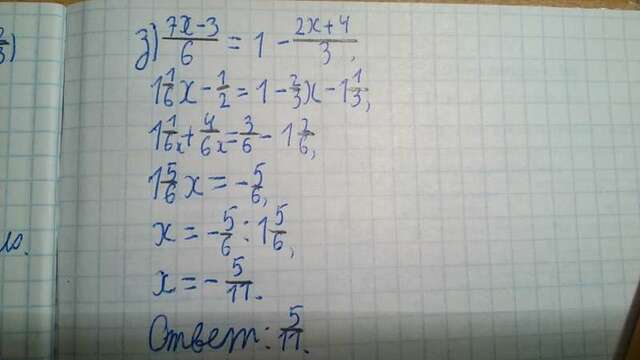 з) (7x-3)/6 = 1 - (2x+4)/3,
1 1/6 x - 1/2 = 1 - 2/3 x - 1 1/3,
1 1/6 x + 4/6 x = 3/6 - 1 2/6,
1 5/6 x = - 5/6,
x = - 5/6 : 1 5/6,
x = - 5/11.
Ответ: 5/11.